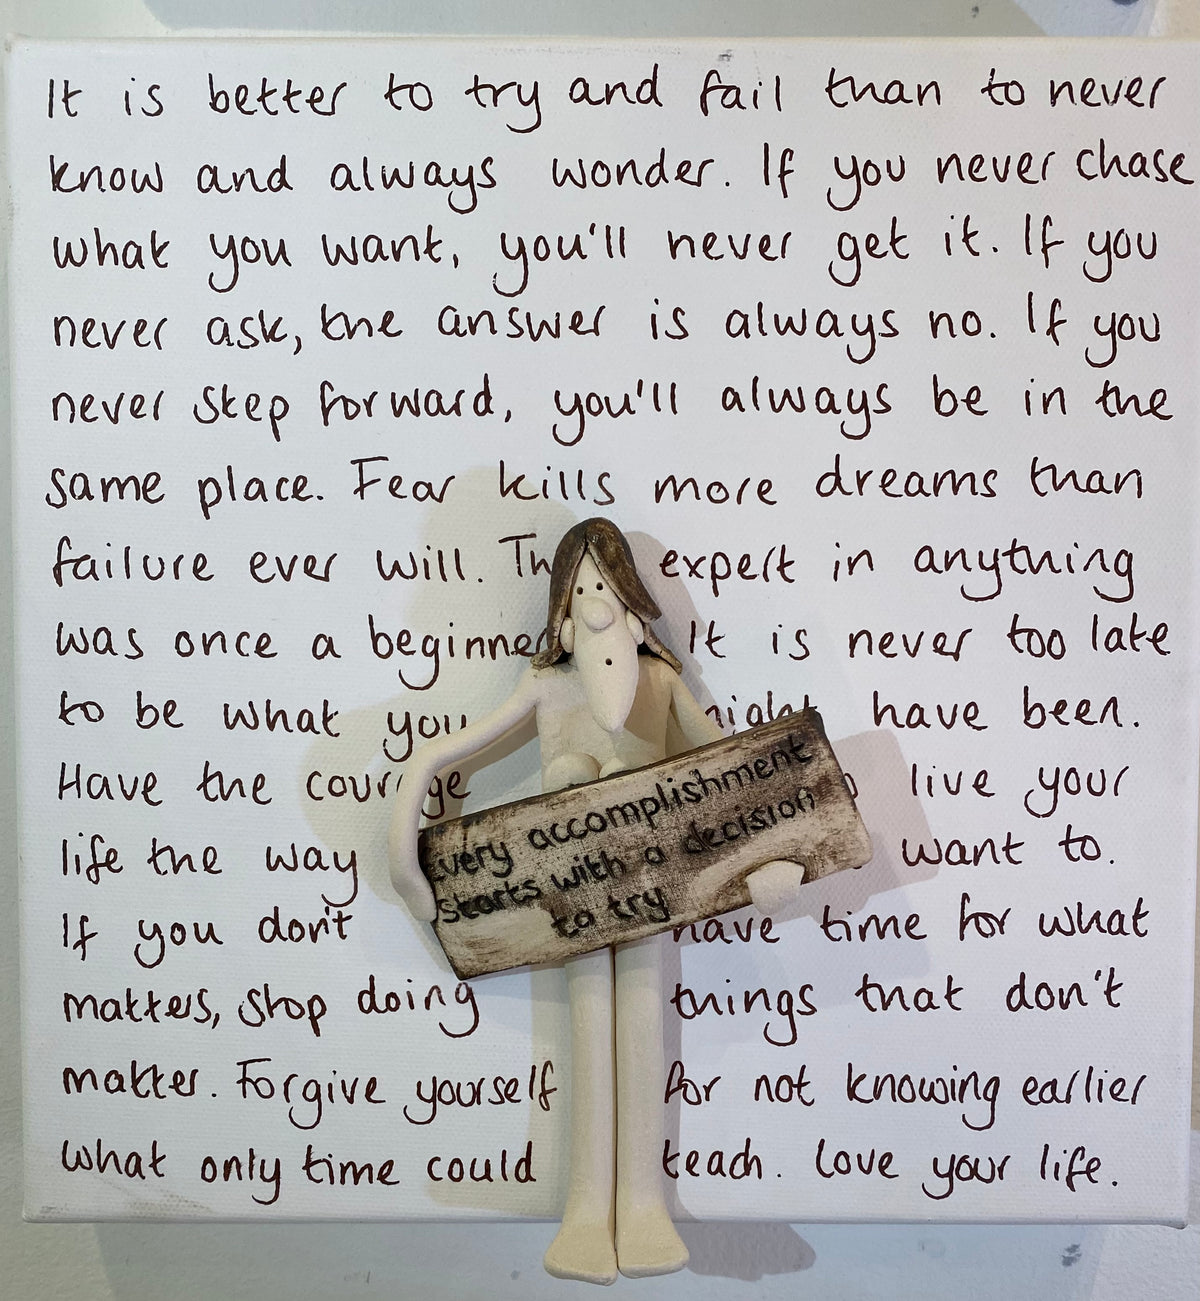 It is better to try and fail than to never
know and always wonder. If you never chase
what you want, you'll never get it. If you
never ask, the answer is always no. If you
never step forward, you'll always be in the
same place. Fear kills more dreams than
failure ever will. expert in anything
was once a beginner It is never too late
to be what you might have been.
Have the courage live your
life the way want to.
If you don't have time for what
matters, stop doing things that don't
matter. Forgive yourself for not knowing earlier
what only time could teach. Love your life.
Every accomplishment
starts with a decision
to try